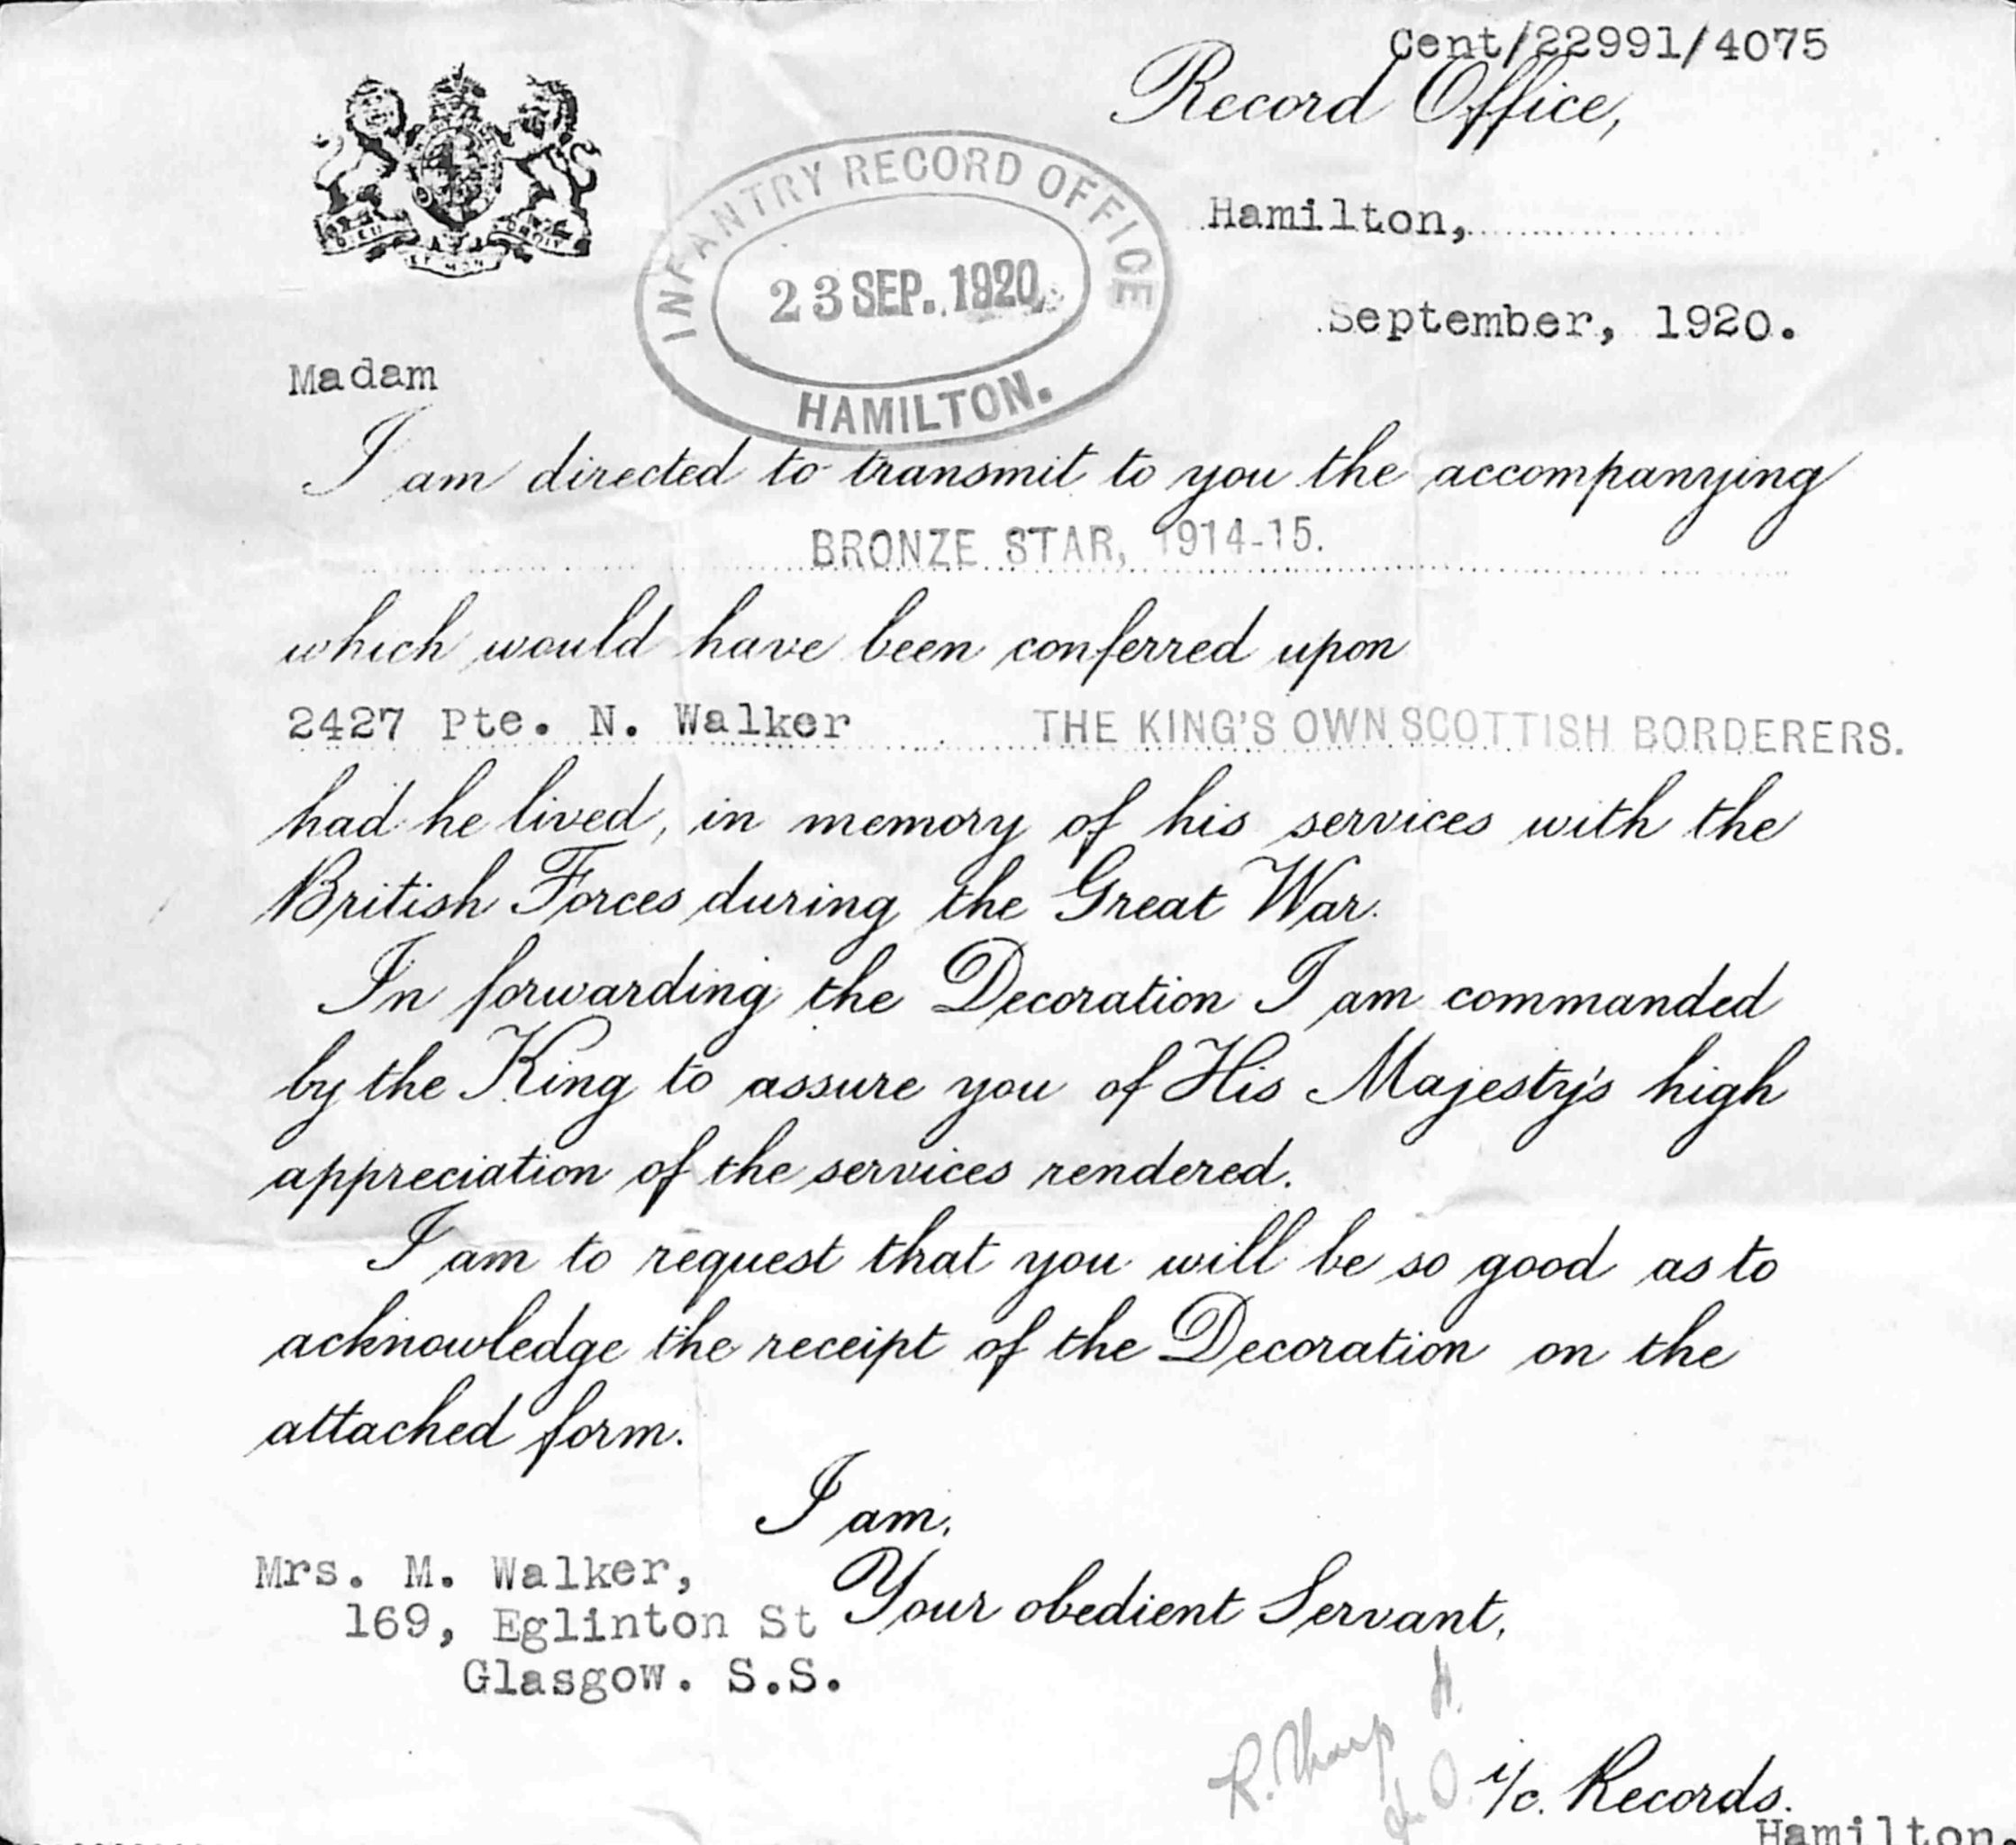 Cent/22991/4075
Record Office,
INFANTRY RECORD OFFICE
23 SEP. 1920
HAMILTON.
Hamilton,
September, 1920.
Madam
I am directed to transmit to you the accompanying
BRONZE STAR, 1914-15.
which would have been conferred upon
2427 Pte. N. Walker THE KING'S OWN SCOTTISH BORDERERS.
had he lived, in memory of his services with the
British Forces during the Great War.
In forwarding the Decoration I am commanded
by the King to assure you of His Majesty's high
appreciation of the services rendered.
I am to request that you will be so good as to
acknowledge the receipt of the Decoration on the
attached form.
I am,
Your obedient Servant,
Mrs. M. Walker,
169, Eglinton St
Glasgow. S.S.
i/c. Records.
Hamilton.